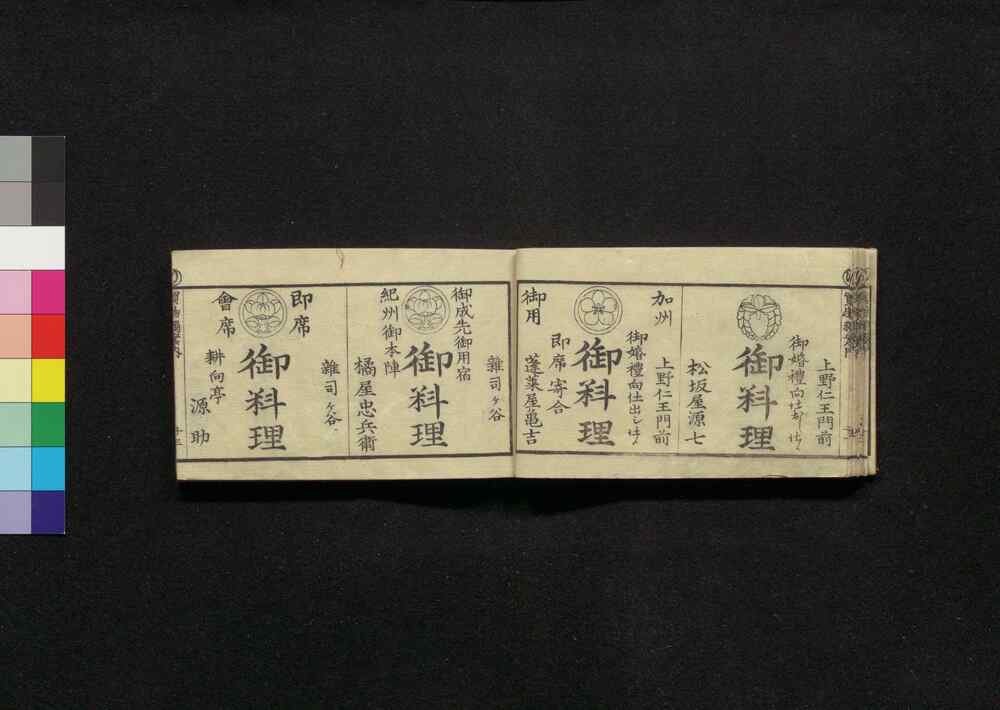 上野仁王門前
御婚禮向仕出し仕候
御料理
松坂屋源七
加州
上野仁王門前
御婚禮向仕出し仕候
御料理
即席寄合
御用
蓬莱屋亀吉
雜司ヶ谷
御成先御用宿
御料理
紀州御本陣
橘屋忠兵衛
雜司ヶ谷
即席
御料理
會席
耕向亭
源助